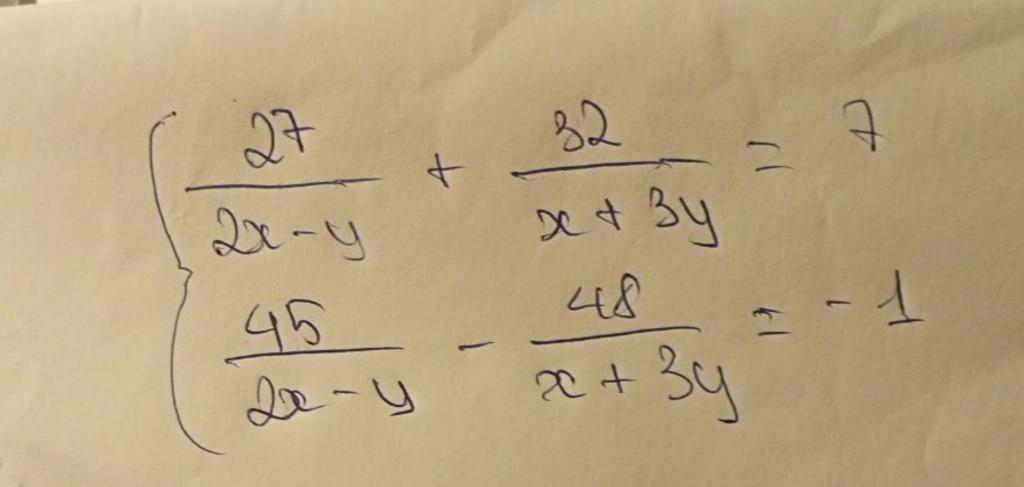 27/(2x-y) + 32/(x+3y) = 7
45/(2x-y) - 48/(x+3y) = -1